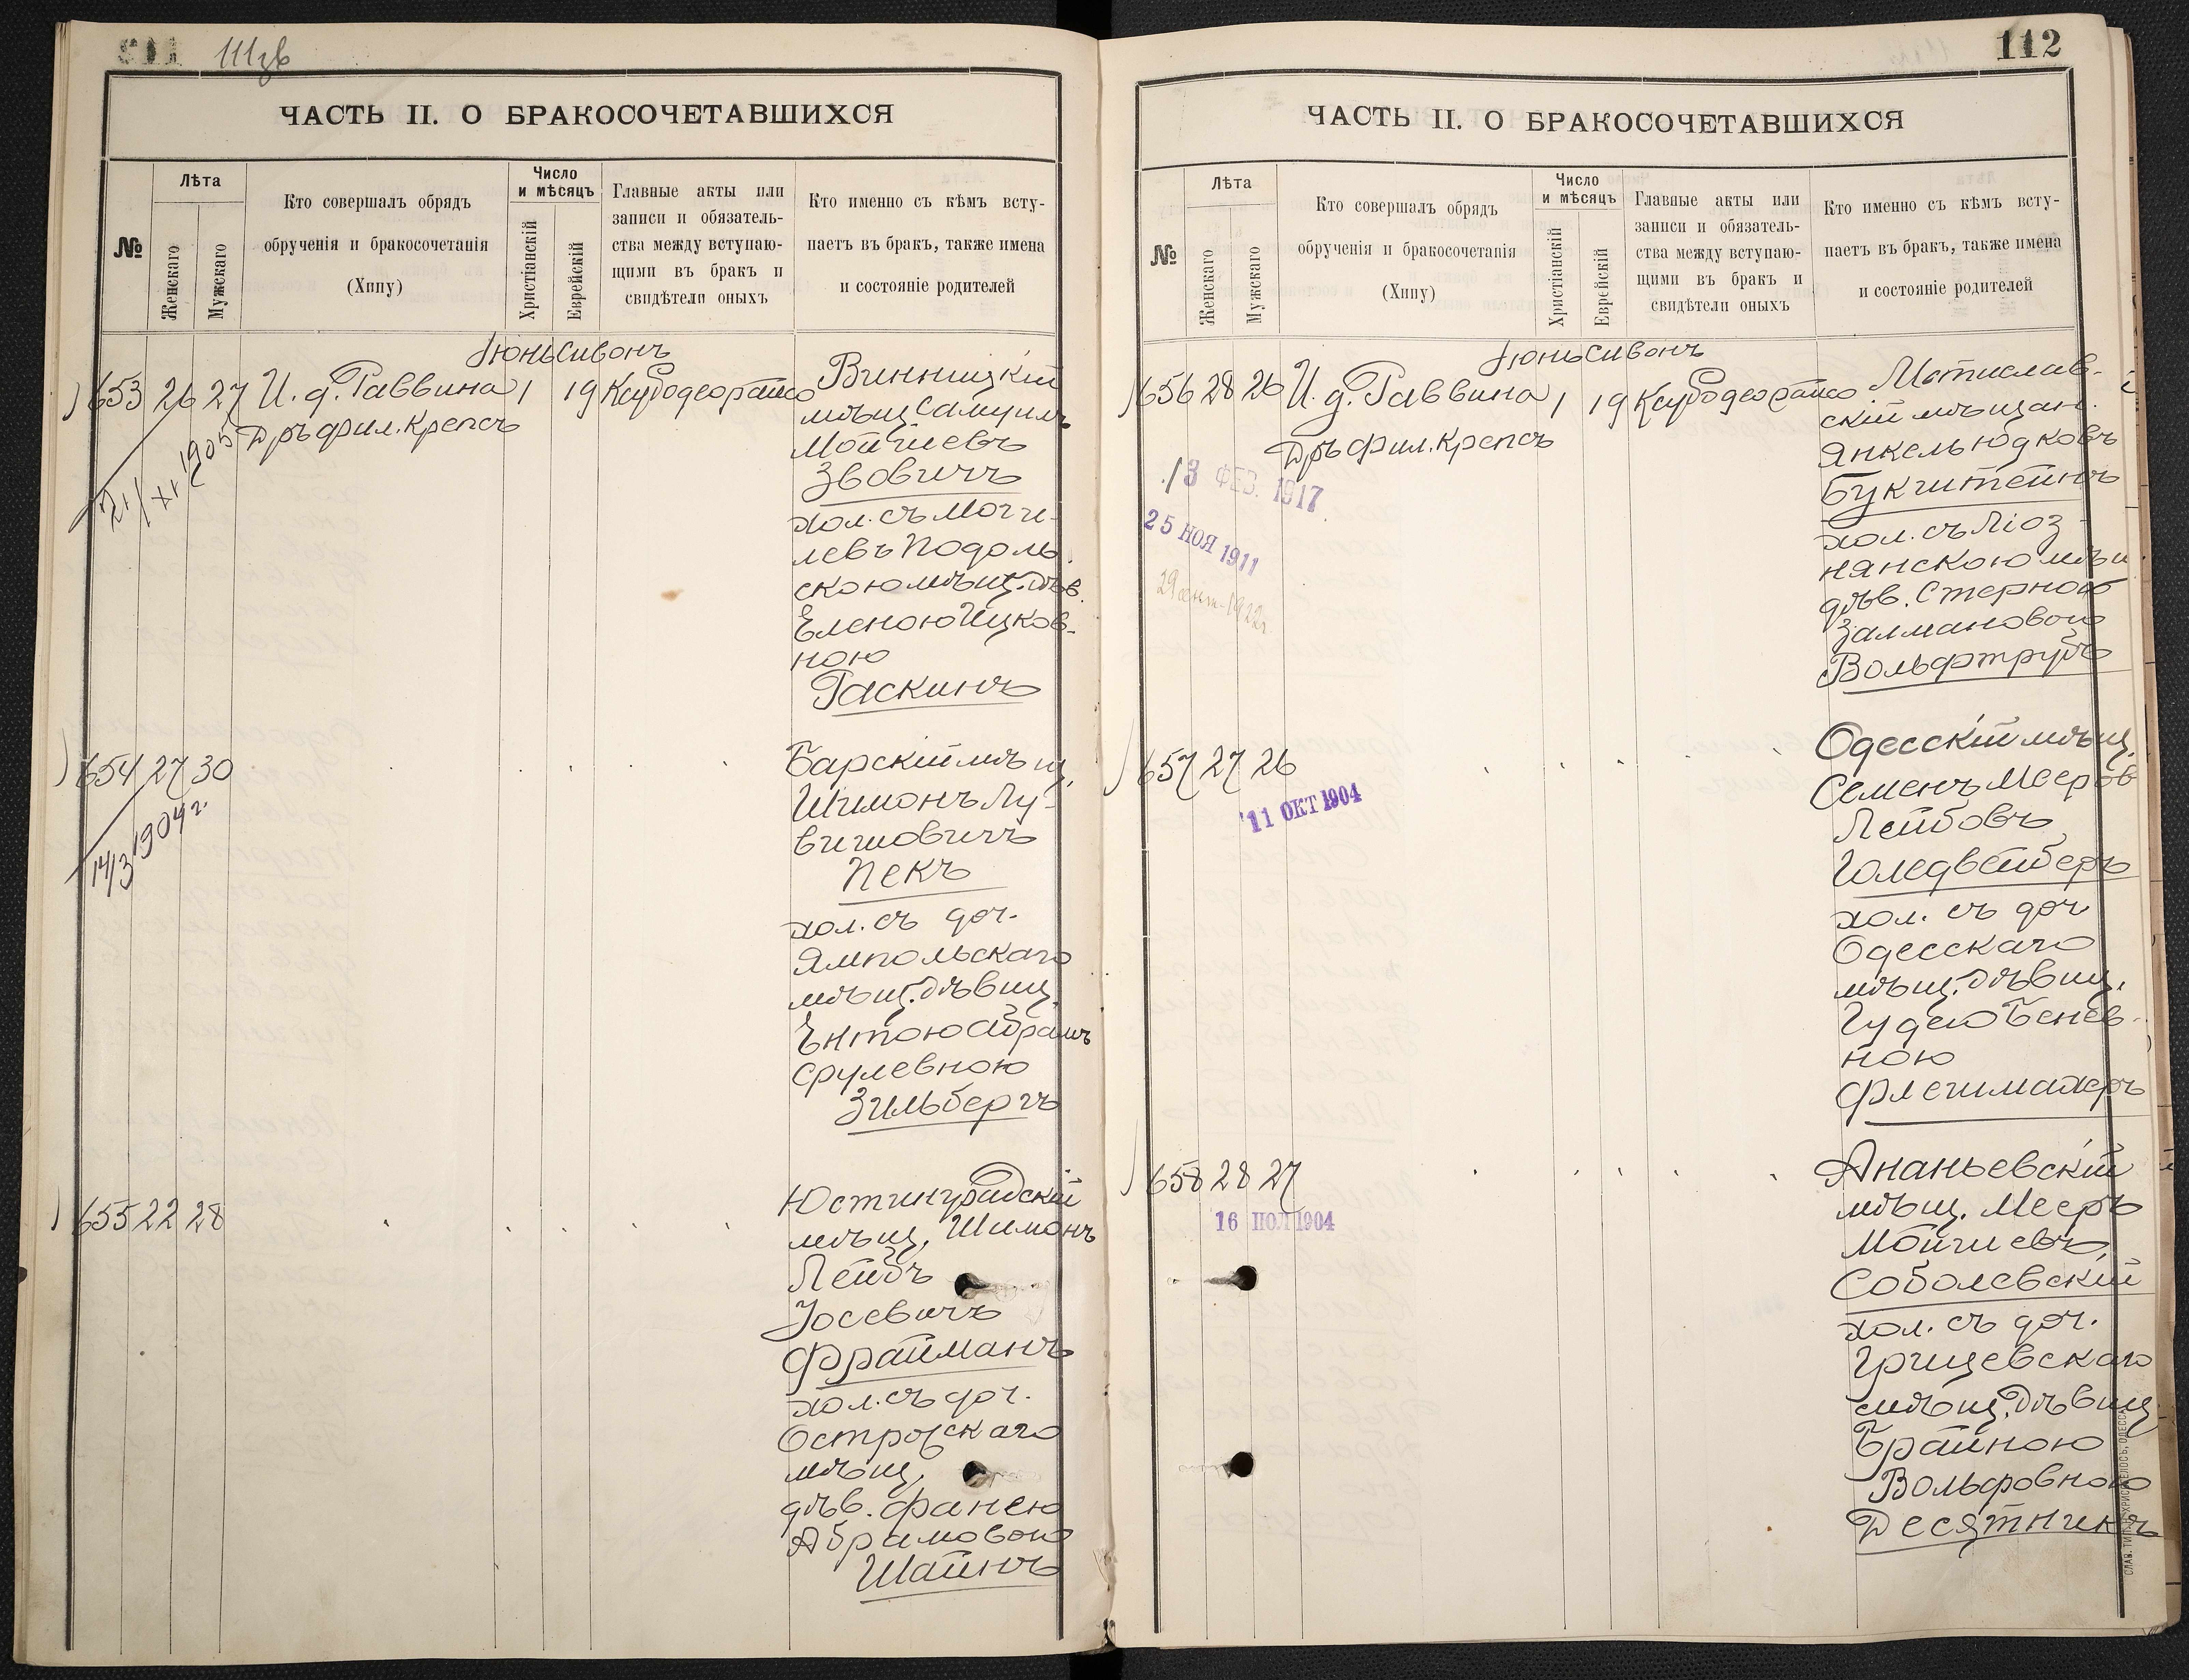 111зв
ЧАСТЬ II. О БРАКОСОЧЕТАВШИХСЯ
№
Лѣта
Женскаго
Мужскаго
Кто совершалъ обрядъ
обрученія и бракосочетанія
(Хипу)
Число
и мѣсяцъ
Христіанскій
Еврейскій
Главные акты или
записи и обязатель-
ства между вступаю-
щими въ бракъ и
свидѣтели оныхъ
Кто именно съ кѣмъ всту-
паетъ въ бракъ, также имена
и состояніе родителей
Іюнь Сивонъ
653 26 27 И. д. Раввина 1 19
Дръ фил. Крепсъ
21/XI 1905
Винницкій
мѣщ Самуилъ
Мойшевъ
Звовичъ
хол. съ Моги-
левъ Подоль
скою мѣщ. дѣв.
Еленою Ицков-
ною
Раскинъ
654 27 30
14/3 1904 г.
Барскій мѣщ.
Шимонъ Лу-
вишовичъ
Пекъ
хол. съ доч.
Ямпольскаго
мѣщ. дѣвиц.
Ентою Абрамъ
Срулевною
Зильбергъ
655 22 28
Юстинградскій
мѣщ. Шимонъ
Лейбъ
Іосевичъ
Фрайманъ
хол. съ доч.
Острогскаго
мѣщ.
дѣв. Фанею
Абрамовою
Шаинъ
112
ЧАСТЬ II. О БРАКОСОЧЕТАВШИХСЯ
№
Лѣта
Женскаго
Мужскаго
Кто совершалъ обрядъ
обрученія и бракосочетанія
(Хипу)
Число
и мѣсяцъ
Христіанскій
Еврейскій
Главные акты или
записи и обязатель-
ства между вступаю-
щими въ бракъ и
свидѣтели оныхъ
Кто именно съ кѣмъ всту-
паетъ въ бракъ, также имена
и состояніе родителей
Іюнь Сивонъ
656 28 26 И. д. Раввина 1 19
Дръ Фил. Крепсъ
13 ФЕВ. 1917
25 НОЯ 1911
29 сент. 1922г
Мстислав-
скій мѣщан.
Янкель Юдковъ
Букштейнъ
хол. съ Ліоз-
нянскою мѣщ
дѣв. Стерною
Залмановою
Вольфтрубъ
657 27 26
11 ОКТ 1904
Одесскій мѣщ.
Семенъ Мееров
Лейбовъ
Голедвейберъ
хол. съ доч
Одесскаго
мѣщ. дѣвиц.
Гудею Бенев-
ною
Флешмахеръ
658 28 27
16 ІЮЛ 1904
Ананьевскій
мѣщ. Мееръ
Мойшевъ
Соболевскій
хол. съ доч.
Грицевскаго
мѣщ. дѣвиц
Брайною
Вольфовною
Десятникъ